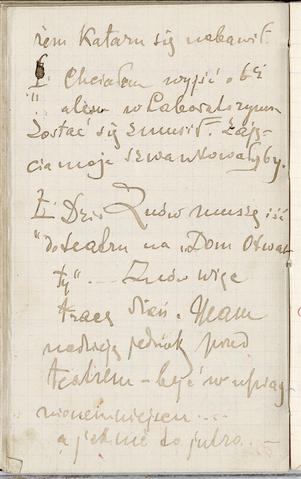 rem Kataru się nabawił.
Chciałem wyjść o 6ej
alem w Laboratoryum
Zostać się zmusił. Zaję-
cia moje szwankowałyby.
Dziś Znów muszę iść
do teatru na „Dom Otwar-
ty" — Znów więc
tracę dzień. Mam
nadzieję jednak przed
teatrem – być w uprag-
nionem miejscu ....
a jak nie to jutro. –